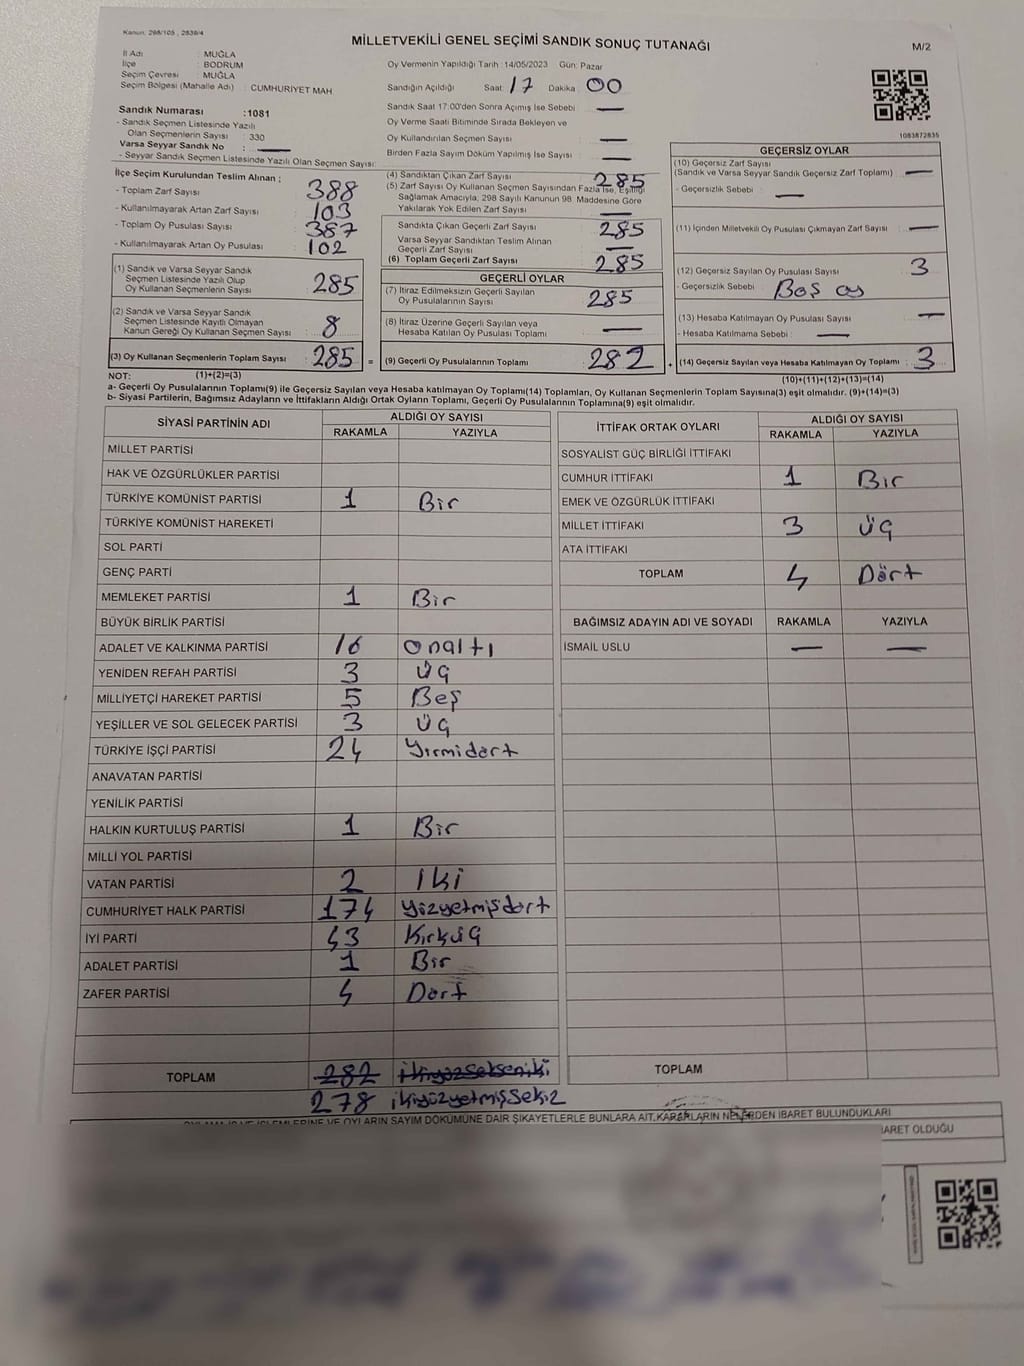 Kanun. 298/105 , 2839/4
MİLLETVEKİLİ GENEL SEÇİMİ SANDIK SONUÇ TUTANAĞI
M/2
İl Adı : MUĞLA
İlçe : BODRUM
Seçim Çevresi : MUĞLA
Seçim Bölgesi (Mahalle Adı) : CUMHURİYET MAH
Sandık Numarası :1081
- Sandık Seçmen Listesinde Yazılı
Olan Seçmenlerin Sayısı : 330
Varsa Seyyar Sandık No : —
- Seyyar Sandık Seçmen Listesinde Yazılı Olan Seçmen Sayısı:
Oy Vermenin Yapıldığı Tarih :14/05/2023 Gün: Pazar
Sandığın Açıldığı Saat: 17 Dakika: 00
Sandık Saat 17:00'den Sonra Açımış İse Sebebi : —
Oy Verme Saati Bitiminde Sırada Bekleyen ve
Oy Kullandırılan Seçmen Sayısı : —
Birden Fazla Sayım Döküm Yapılmış İse Sayısı : —
1083872835
İlçe Seçim Kurulundan Teslim Alınan ;
- Toplam Zarf Sayısı : 388
- Kullanılmayarak Artan Zarf Sayısı : 103
- Toplam Oy Pusulası Sayısı : 387
- Kullanılmayarak Artan Oy Pusulası : 102
(1) Sandık ve Varsa Seyyar Sandık
Seçmen Listesinde Yazılı Olup
Oy Kullanan Seçmenlerin Sayısı : 285
(2) Sandık ve Varsa Seyyar Sandık
Seçmen Listesinde Kayıtlı Olmayan
Kanun Gereği Oy Kullanan Seçmen Sayısı : 8
(3) Oy Kullanan Seçmenlerin Toplam Sayısı : 285 =
(4) Sandıktan Çıkan Zarf Sayısı : 285
(5) Zarf Sayısı Oy Kullanan Seçmen Sayısından Fazla İse, Eşitliği
Sağlamak Amacıyla, 298 Sayılı Kanunun 98. Maddesine Göre
Yakılarak Yok Edilen Zarf Sayısı : —
Sandıkta Çıkan Geçerli Zarf Sayısı : 285
Varsa Seyyar Sandıktan Teslim Alınan
Geçerli Zarf Sayısı : —
(6) Toplam Geçerli Zarf Sayısı : 285
GEÇERLİ OYLAR
(7) İtiraz Edilmeksizin Geçerli Sayılan
Oy Pusulalarının Sayısı : 285
(8) İtiraz Üzerine Geçerli Sayılan veya
Hesaba Katılan Oy Pusulası Toplamı : —
(9) Geçerli Oy Pusulalarının Toplamı : 282
GEÇERSİZ OYLAR
(10) Geçersiz Zarf Sayısı
(Sandık ve Varsa Seyyar Sandık Geçersiz Zarf Toplamı) : —
- Geçersizlik Sebebi : —
(11) İçinden Milletvekili Oy Pusulası Çıkmayan Zarf Sayısı : —
(12) Geçersiz Sayılan Oy Pusulası Sayısı : 3
- Geçersizlik Sebebi : Boş oy
(13) Hesaba Katılmayan Oy Pusulası Sayısı : —
- Hesaba Katılmama Sebebi : —
(14) Geçersiz Sayılan veya Hesaba Katılmayan Oy Toplamı : 3
NOT: (1)+(2)=(3)
(10)+(11)+(12)+(13)=(14)
a- Geçerli Oy Pusulalarının Toplamı(9) ile Geçersiz Sayılan veya Hesaba katılmayan Oy Toplamı(14) Toplamları, Oy Kullanan Seçmenlerin Toplam Sayısına(3) eşit olmalıdır. (9)+(14)=(3)
b- Siyasi Partilerin, Bağımsız Adayların ve İttifakların Aldığı Ortak Oyların Toplamı, Geçerli Oy Pusulalarının Toplamına(9) eşit olmalıdır.
SİYASİ PARTİNİN ADI ALDIĞI OY SAYISI
RAKAMLA YAZIYLA
MİLLET PARTİSİ
HAK VE ÖZGÜRLÜKLER PARTİSİ
TÜRKİYE KOMÜNİST PARTİSİ 1 Bir
TÜRKİYE KOMÜNİST HAREKETİ
SOL PARTİ
GENÇ PARTİ
MEMLEKET PARTİSİ 1 Bir
BÜYÜK BİRLİK PARTİSİ
ADALET VE KALKINMA PARTİSİ 16 onaltı
YENİDEN REFAH PARTİSİ 3 üç
MİLLİYETÇİ HAREKET PARTİSİ 5 Beş
YEŞİLLER VE SOL GELECEK PARTİSİ 3 üç
TÜRKİYE İŞÇİ PARTİSİ 24 Yirmidört
ANAVATAN PARTİSİ
YENİLİK PARTİSİ
HALKIN KURTULUŞ PARTİSİ 1 Bir
MİLLİ YOL PARTİSİ
VATAN PARTİSİ 2 İki
CUMHURİYET HALK PARTİSİ 174 Yüzyetmişdört
İYİ PARTİ 43 Kırküç
ADALET PARTİSİ 1 Bir
ZAFER PARTİSİ 4 Dört
TOPLAM 282 ikiyüzsekseniki
278 ikiyüzyetmişsekiz
İTTİFAK ORTAK OYLARI ALDIĞI OY SAYISI
RAKAMLA YAZIYLA
SOSYALİST GÜÇ BİRLİĞİ İTTİFAKI
CUMHUR İTTİFAKI 1 Bir
EMEK VE ÖZGÜRLÜK İTTİFAKI
MİLLET İTTİFAKI 3 üç
ATA İTTİFAKI
TOPLAM 4 Dört
BAĞIMSIZ ADAYIN ADI VE SOYADI RAKAMLA YAZIYLA
İSMAİL USLU — —
TOPLAM
VE OYLARIN SAYIM DÖKÜMÜNE DAİR ŞİKAYETLERLE BUNLARA AİT KARARLARIN NELERDEN İBARET BULUNDUKLARI
İBARET OLDUĞU